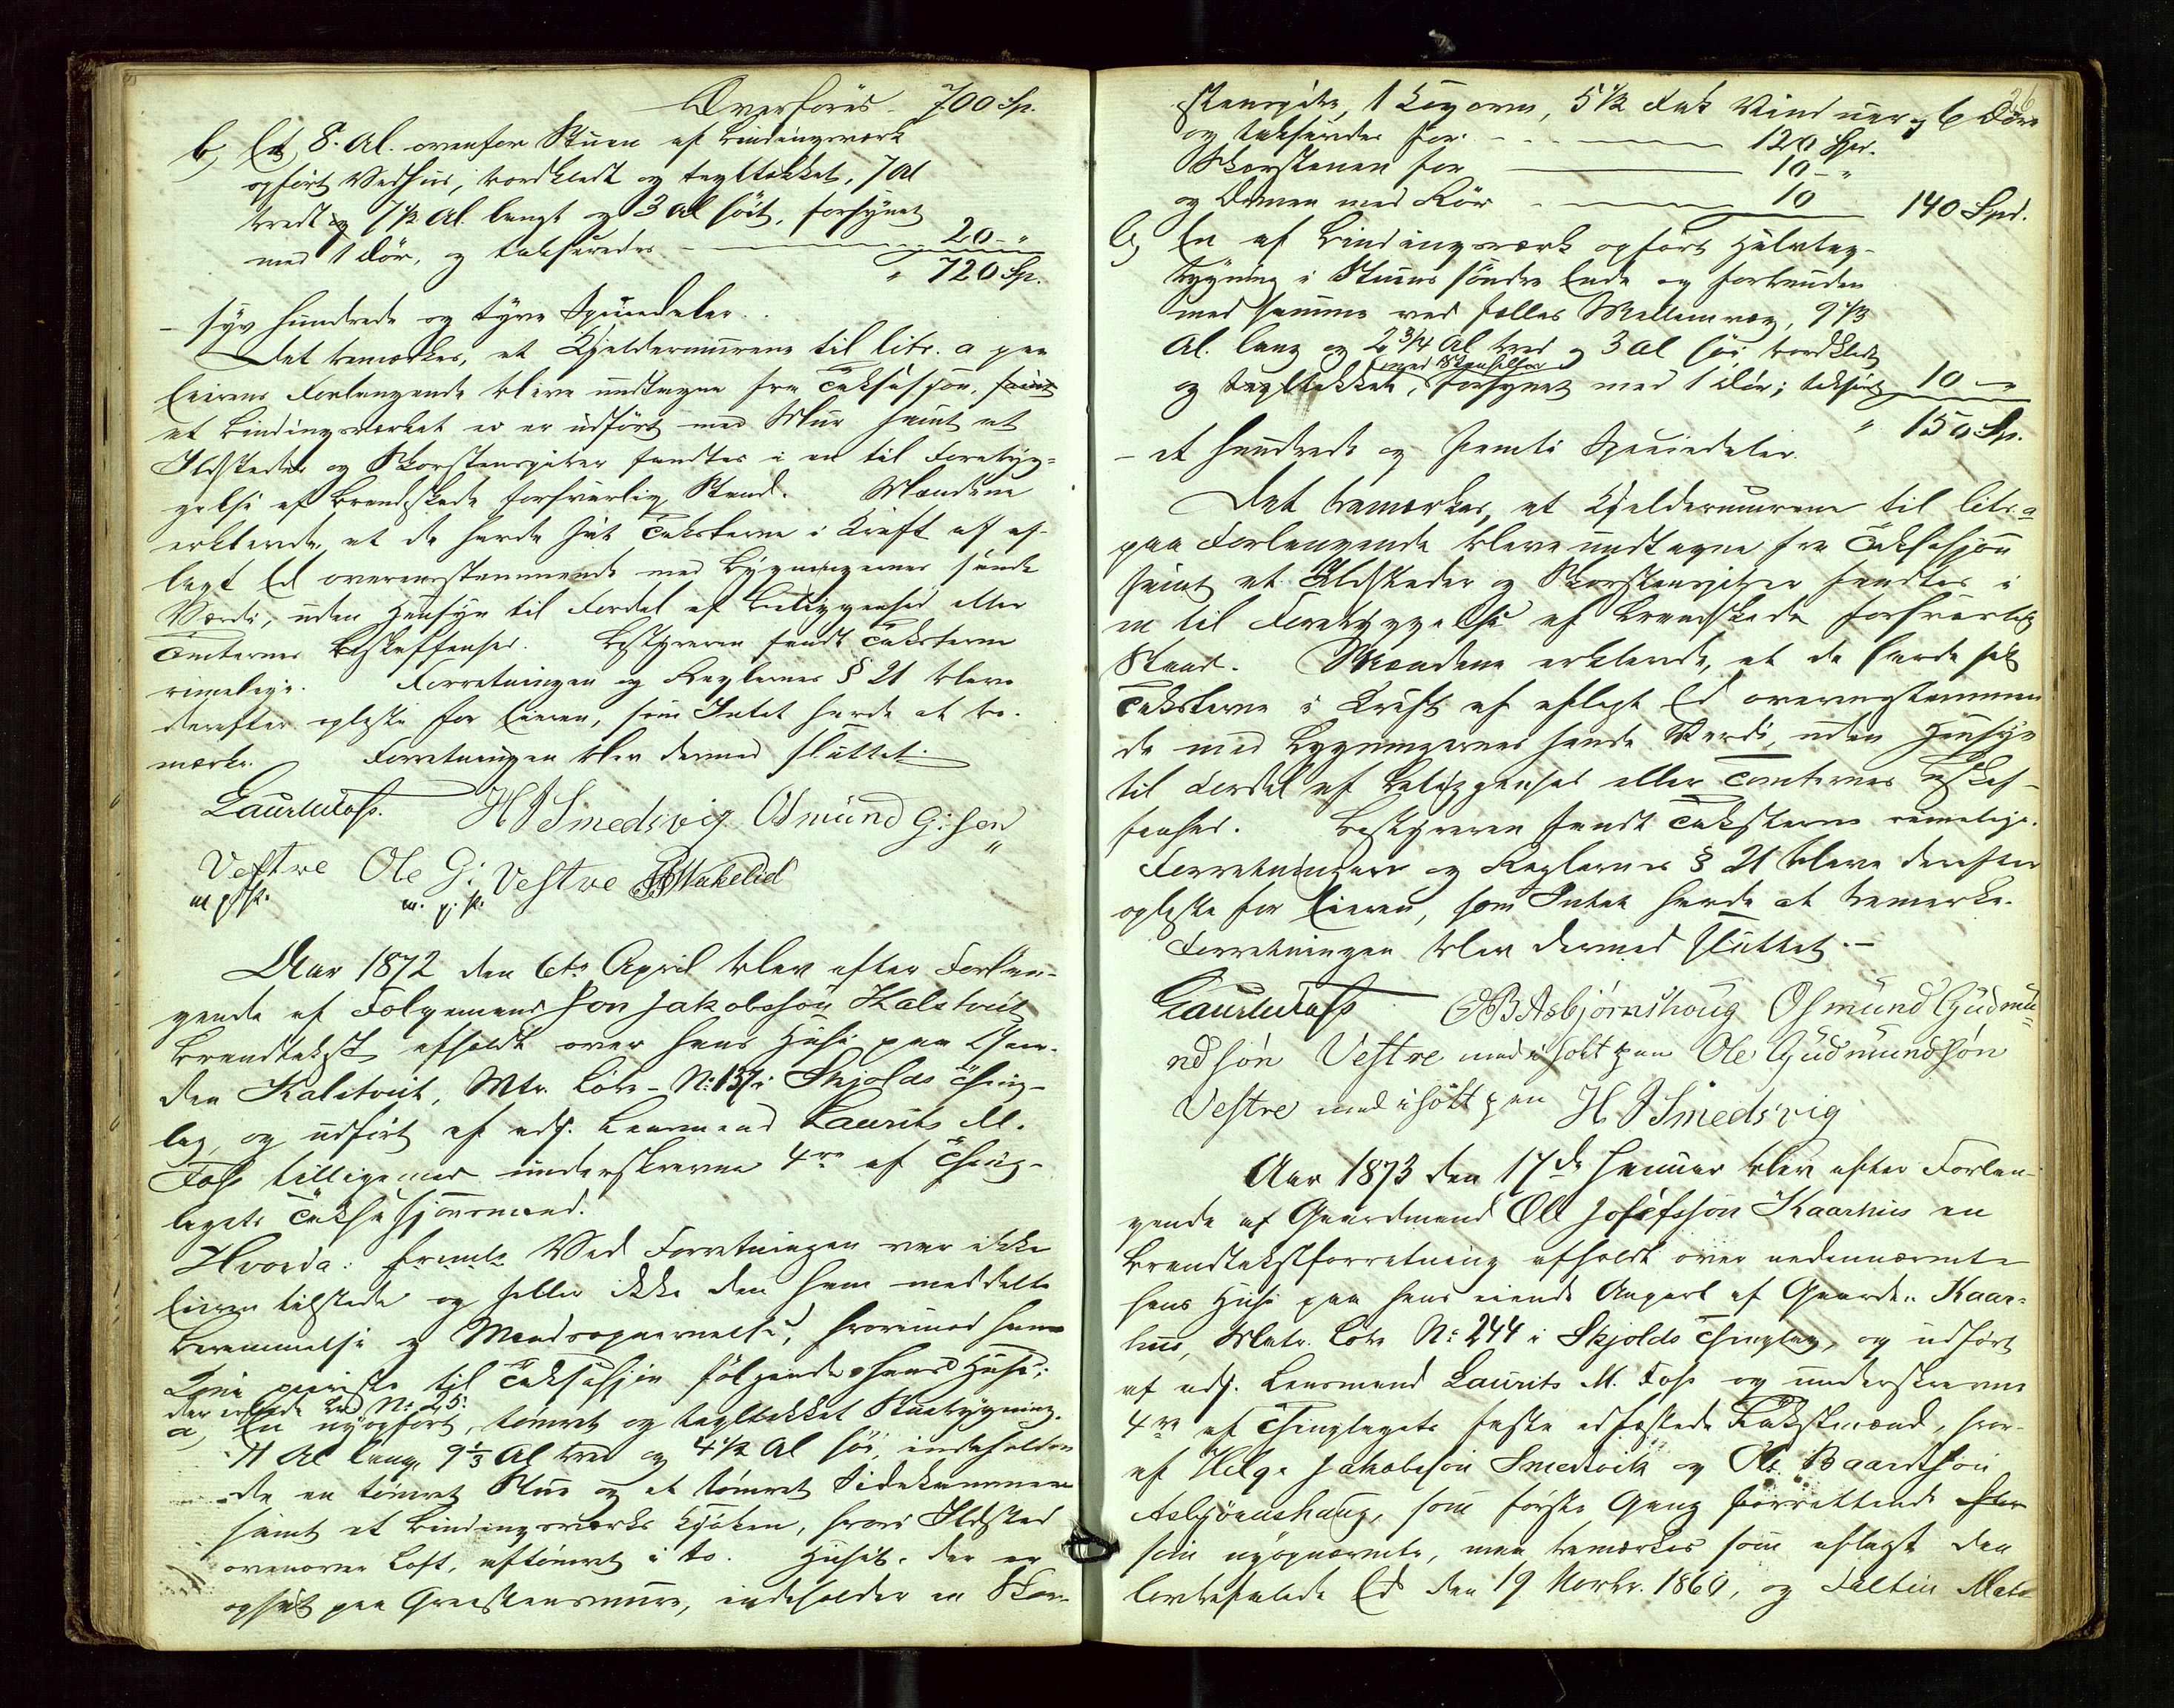 Overføres - 700 Sp.
b, Et 8. Al. ovenfor Stuen af Bindingsværk
opført Vedhus, bordklædt og tegltækket, 7 Al
bredt og 7 1/2 Al. langt og 3 Al høit, forsynet
med 1 Dør, og taksēredes - 20 - "
" 720 Sp.
- syv hundrede og tyve Speciedaler.
Det bemærkes, at Kjeldermurene til litr. a paa
Eierens Forlangende bleve undtagne fra Taksasjon, samt
at Bindingsværket er udført med Mur samt at
Ildsteder og Skorstenspiber fandtes i en til Forebyg-
gelse af Brandskade forsvarlig Stand. Mændene
erklærede, at de havde sat Taksterne i Kraft af af-
lagt Ed overensstemmende med Bygningernes sande
Værdi, uden Hensyn til Fordel af Beliggenhed eller
Tomternes Beskaffenhed. Bestyreren fandt Taksterne
rimelige. Forretningen og Reglernes § 21 bleve
derefter oplæste for Eieren, som Intet havde at be-
mærke. Forretningen blev dermed sluttet.
Laur M Foss. H J Smedsvig Osmund G: sen
Vestre Ole G: Vestre
m. p. P. m. p. P.
Aar 1872 den 6te April blev efter Forlan-
gende af Folgemand Jon Jakobssøn Kalstveit
Brandtakst afholdt over hans Huse paa Gaar-
den Kalstveit, Mtr. Løbe-No: 137 i Skjolds Thing-
lag, og udført af edf. Lensmand Laurits M.
Foss tilligemed underskrevne 4re af Thing-
lagets Taksasjonsmænd.
Hvorda: fremb. Ved Forretningen var ikke
Eieren tilstede og heller ikke den ham meddelte
Berammelse og Mandsopnævnelse, hvorimod hans
Kone paaviste til Taksasjon følgende hans Huse:
der er No: 25.
a, En nyopført, tømret og tegltækket Stuebygning.
11 Al lang, 9 1/3 Al bred og 4 1/2 Al høi, indeholden-
de en tømret Stue og et tømret Sidekammer
samt et Bindingsværks Kjøken, hvori Ildsted
ovenover Loft, aftømret i to. Huset, der er
opsat paa Graastensmure, indeholder en Skor-
26
stenspibe, 1 Kogovn, 5 1/2 Fak Vinduer og 6 Døre
og taksēredes for - 120 Spd.
Skorstenen for - 10 - "
og Ovnen med Rør - 10 140 Spd.
b, En af Bindingsværk opført Halvtag-
bygning i Stuens søndre Ende og forbunden
med samme ved fælles Mellemvæg, 9 1/3
Al. lang og 2 3/4 Al bred og 3 Al høi, bordklædt
med Stenheller
og tegltækket, forsynet med 1 Dør; taksert 10 - "
" 150 Sp.
- et hundrede og femti Speciedaler.
Det bemærkes, at Kjeldermurene til litr. a
paa Forlangende bleve undtagne fra Taksasjon
samt at Ildsteder og Skorstenspiber fandtes i
en til Forebyggelse af Brandskade forsvarlig
Stand. Mændene erklærede, at de havde sat
Taksterne i Kraft af aflagt Ed overensstemmen
de med Bygningernes sande Værdi, uden Hensyn
til Fordel af Beliggenhed eller Tomternes Beskaf-
fenhed. Bestyreren fandt Taksterne rimelige.
Forretningen og Reglernes § 21 bleve derefter
oplæste for Eieren, som Intet havde at bemærke.
Forretningen blev dermed sluttet. -
Laur M Foss O B Asbjørnshoug Osmund Gudmu
ndsøn Vestre med iholt pen Ole Gudmundsøn
Vestre med iholt pen H J Smedsvig
Aar 1873 den 17de Januar blev efter Forlan-
gende af Gaardmand Ole Josefssøn Kaarhus en
Brandtakstforretning afholdt over nedennævnte
hans Huse paa hans eiende Anpart af Gaarden Kaar-
hus, Matr. Løbe No: 244 i Skjolds Thinglag, og udført
af edf. Lensmand Laurits M. Foss og underskrevne
4re af Thinglagets faste edfæstede Takstmænd, hvor-
af Helge Jakobsøn Smedsvik og Ole Baardsøn
Asbjørnshaug, som første Gang forrettende efter
som nyopnævnte, men bemærkes som aflagt den
lovbefalede Ed den 19 Novbr. 1861, og Faltin Mats-